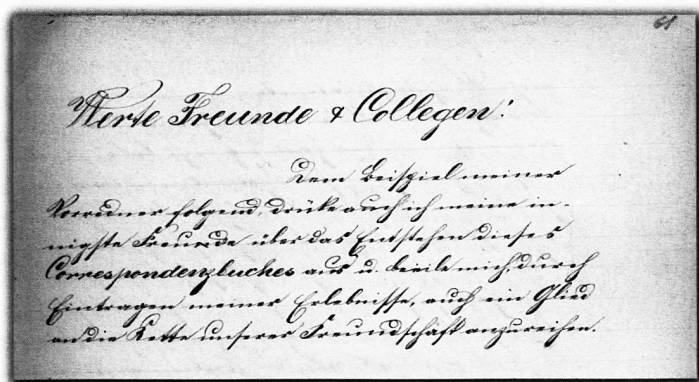 61
Werte Freunde & Collegen!
Dem Beispiel meiner
Vorredner folgend, drüke auch ich meine in-
nigste Freude über das Entstehen dieses
Correspondenzbuches aus u. beeile mich, durch
Eintragen meiner Erlebnisse, auch ein Glied
an die Kette unserer Freundschaft anzureihen.